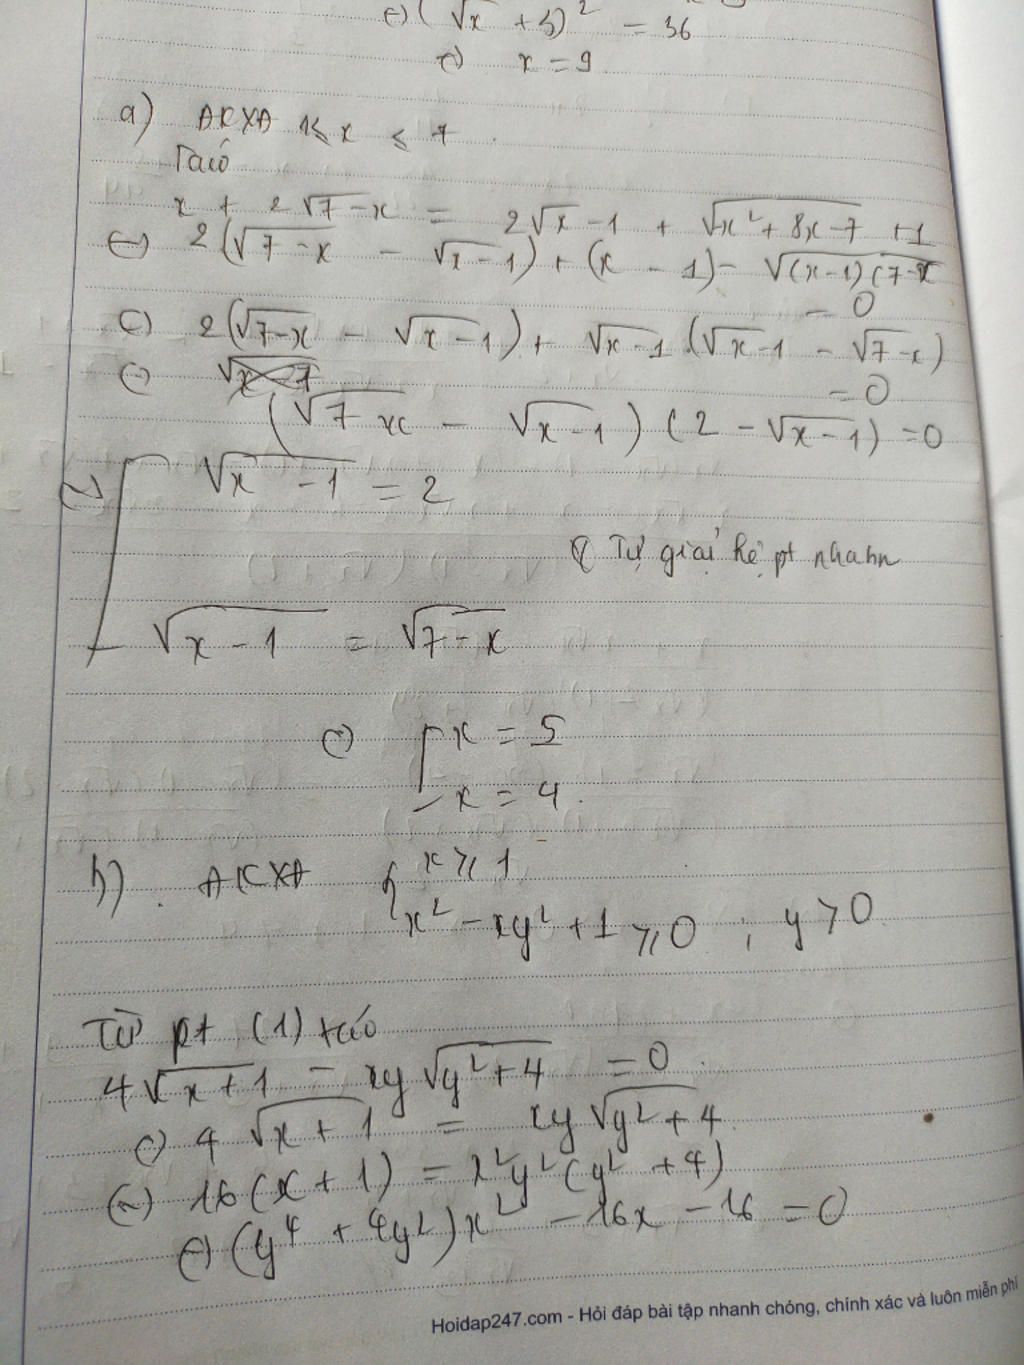 ⇔ (√x + 3)² = 36
⇔ x = 9
a) ĐKXĐ 1 ≤ x ≤ 7.
Ta có
x + 2√7-x = 2√x-1 + √x²+8x-7 +1
⇔ 2(√7-x - √x-1) + (x - 1) - √(x-1)(7-x
= 0
⇔ 2(√7-x - √x-1) + √x-1 (√x-1 - √7-x)
= 0
⇔
(√7-x - √x-1) (2 - √x-1) = 0
⇔ [ √x-1 = 2
Tự giải hệ pt nhahn
√x-1 = √7-x
⇔ [ x = 5
x = 4.
b) ĐKXĐ { x ≥ 1
x² - xy² + 1 ≥ 0 ; y > 0
Từ pt (1) ta có
4√x+1 - xy√y²+4 = 0.
⇔ 4√x+1 = xy√y²+4.
⇔ 16(x+1) = x²y²(y²+4)
⇔ (y⁴ + 4y²)x² - 16x - 16 = 0
Hoidap247.com - Hỏi đáp bài tập nhanh chóng, chính xác và luôn miễn phí